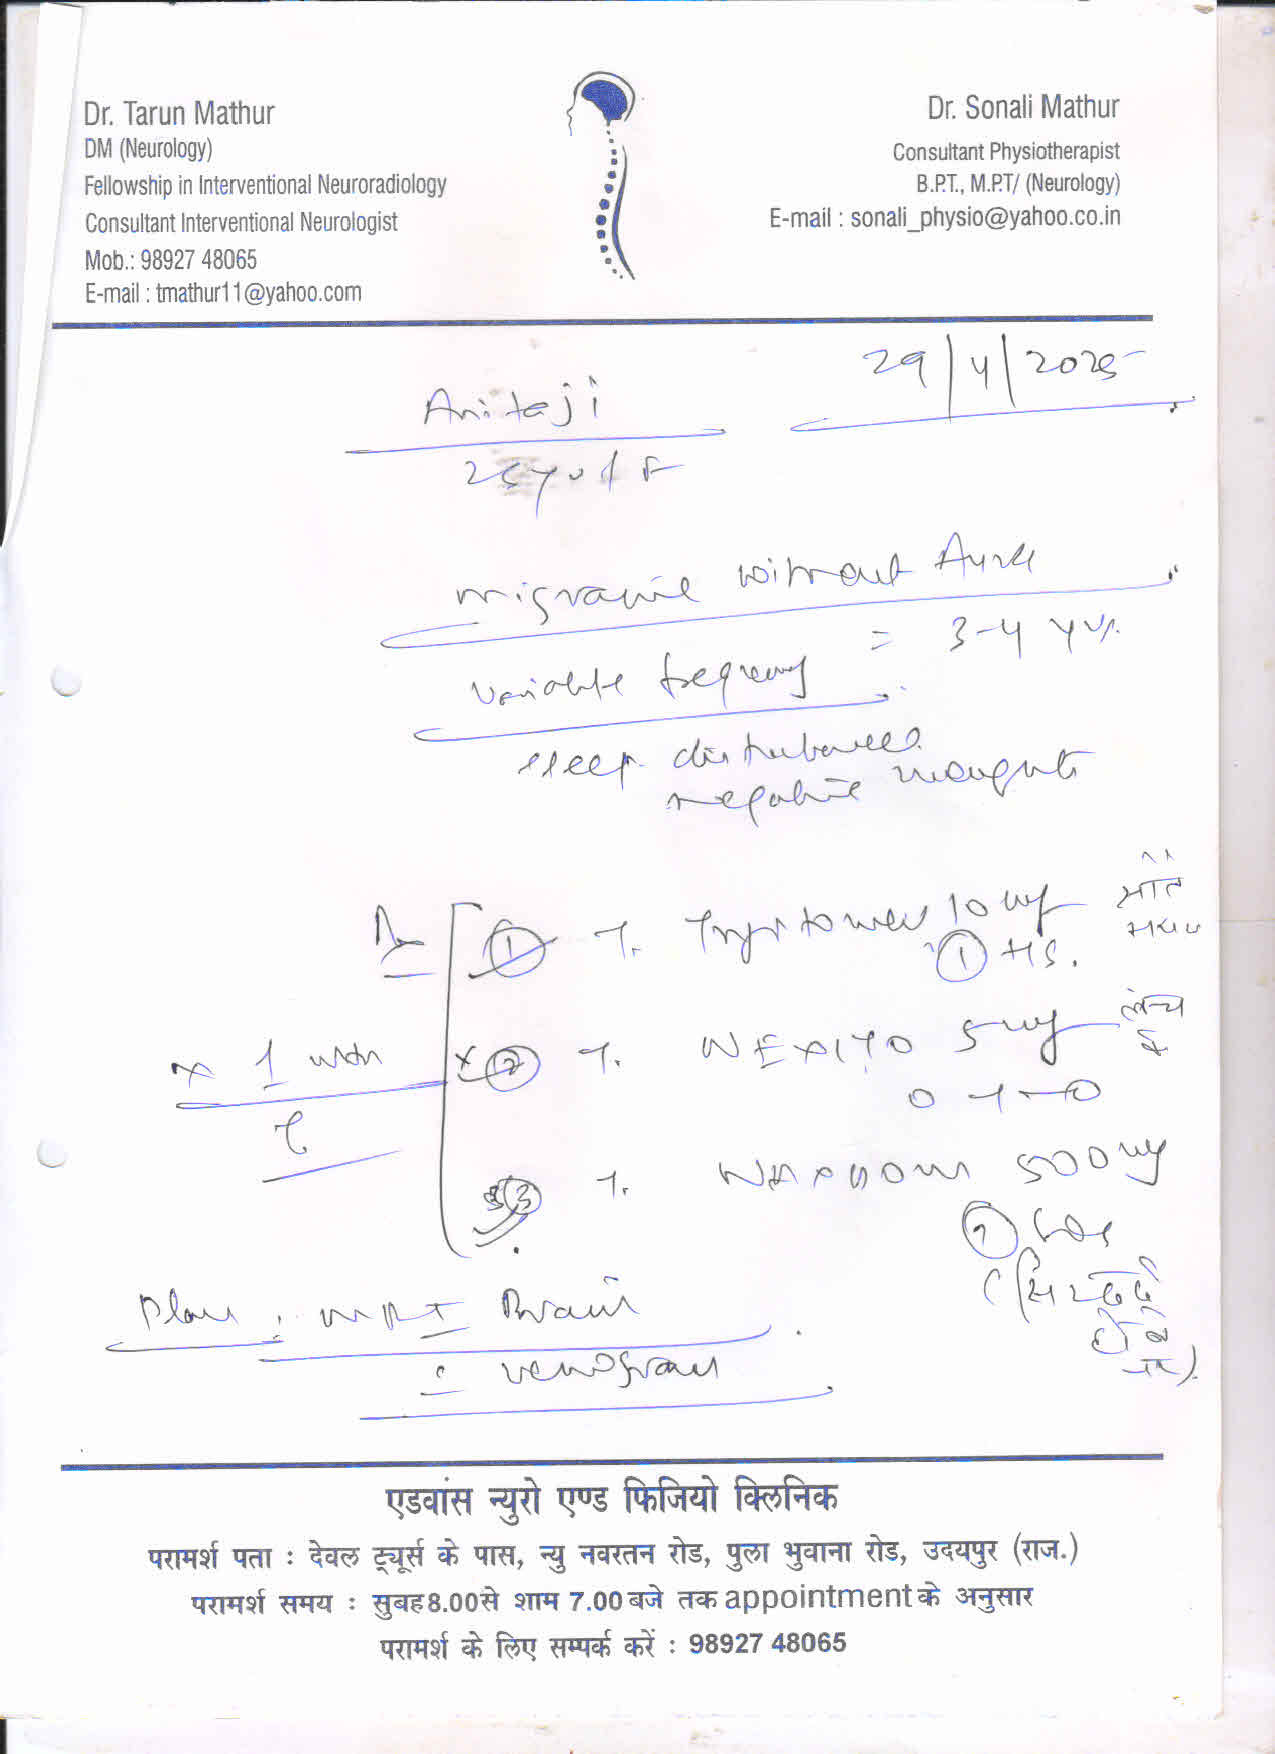 Dr. Tarun Mathur
DM (Neurology)
Fellowship in Interventional Neuroradiology
Consultant Interventional Neurologist
Mob.: 98927 48065
E-mail : tmathur11@yahoo.com
Dr. Sonali Mathur
Consultant Physiotherapist
B.P.T., M.P.T/ (Neurology)
E-mail : sonali_physio@yahoo.co.in
29/4/2025
Anitaji
25yo/F
migraine without Aura
= 3-4 yrs.
variable frequency
sleep disturbances
negative thoughts
Rx
1 T. 10 mg सोते समय
1 HS.
2 T. NEXITO 5 mg लंच के
0-1-0
x 1 mth
3 T. 500mg
1 SOS
(सिरदर्द होने पर)
Plan : MRI Brain
c venogram
एडवांस न्युरो एण्ड फिजियो क्लिनिक
परामर्श पता : देवल ट्यूर्स के पास, न्यु नवरतन रोड, पुला भुवाना रोड, उदयपुर (राज.)
परामर्श समय : सुबह 8.00 से शाम 7.00 बजे तक appointment के अनुसार
परामर्श के लिए सम्पर्क करें : 98927 48065